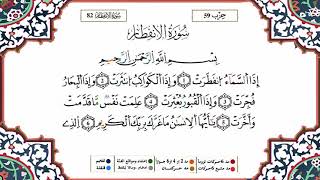 حزب 59
سورة الانفطار 82
سُورَةُ الاِنفِطَارِ
بِسْمِ اللَّهِ الرَّحْمَنِ الرَّحِيمِ
إِذَا السَّمَاءُ انفَطَرَتْ ① وَإِذَا الْكَوَاكِبُ انتَثَرَتْ ② وَإِذَا الْبِحَارُ
فُجِّرَتْ ③ وَإِذَا الْقُبُورُ بُعْثِرَتْ ④ عَلِمَتْ نَفْسٌ مَّا قَدَّمَتْ
وَأَخَّرَتْ ⑤ يَٰأَيُّهَا الْإِنسَٰنُ مَا غَرَّكَ بِرَبِّكَ الْكَرِيمِ ⑥ الَّذِي